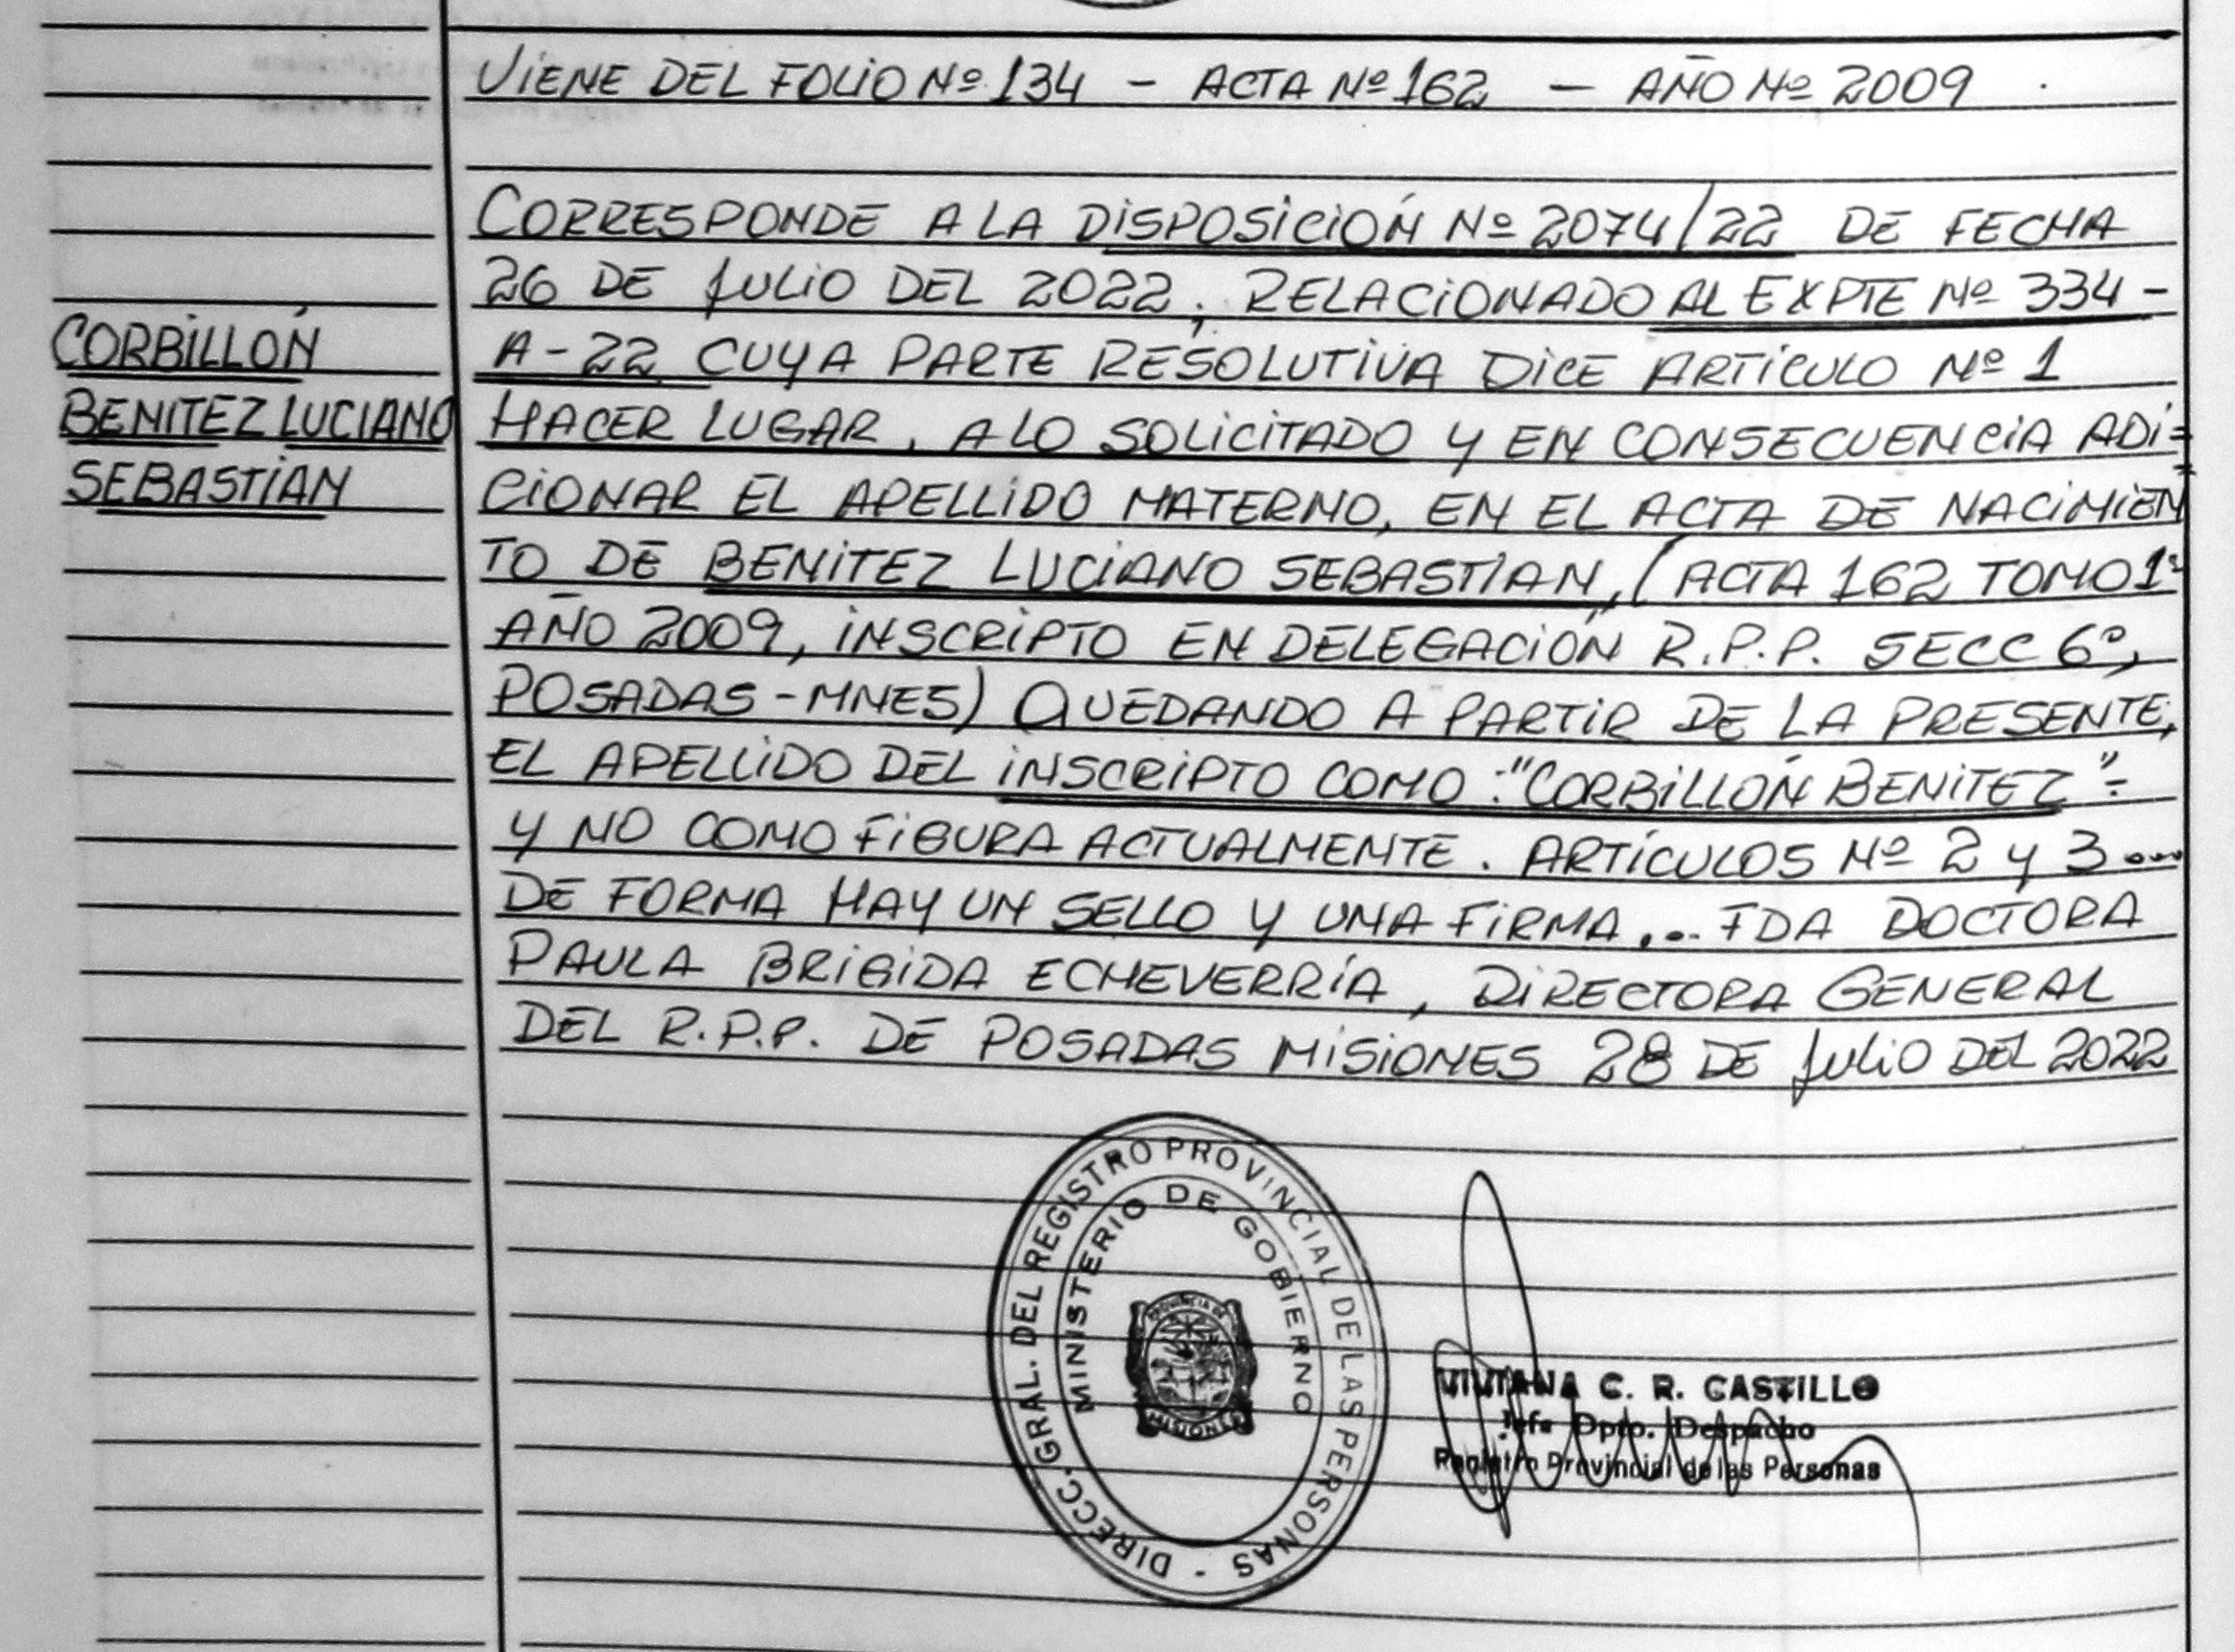 VIENE DEL FOLIO Nº 134 - ACTA Nº 162 - AÑO Nº 2009
CORRESPONDE A LA DISPOSICIÓN Nº 2074/22 DE FECHA
26 DE JULIO DEL 2022, RELACIONADO AL EXPTE Nº 334-
CORBILLÓN
BENITEZ LUCIANO
SEBASTIAN
A-22 CUYA PARTE RESOLUTIVA DICE ARTÍCULO Nº 1
HACER LUGAR, A LO SOLICITADO Y EN CONSECUENCIA ADI=
CIONAR EL APELLIDO MATERNO, EN EL ACTA DE NACIMIEN
TO DE BENITEZ LUCIANO SEBASTIAN, (ACTA 162 TOMO 1º
AÑO 2009, INSCRIPTO EN DELEGACIÓN R.P.P. SECC 6º,
POSADAS-MNES) QUEDANDO A PARTIR DE LA PRESENTE,
EL APELLIDO DEL INSCRIPTO COMO: "CORBILLÓN BENITEZ"-
Y NO COMO FIGURA ACTUALMENTE. ARTÍCULOS Nº 2 Y 3...
DE FORMA HAY UN SELLO Y UNA FIRMA... FDA DOCTORA
PAULA BRIGIDA ECHEVERRÍA, DIRECTORA GENERAL
DEL R.P.P. DE POSADAS MISIONES 28 DE JULIO DEL 2022
DIRECC. GRAL. DEL REGISTRO PROVINCIAL DE LAS PERSONAS -
MINISTERIO DE GOBIERNO
PROVINCIA DE
MISIONES
VIVIANA C. R. CASTILLO
Jefe Dpto. Despacho
Registro Provincial de las Personas